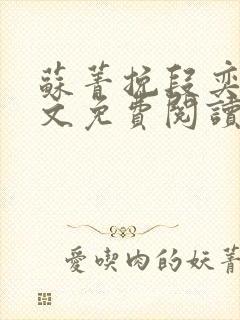 蘇菁挽段奕
文免費閱讀
愛喫肉的妖菁